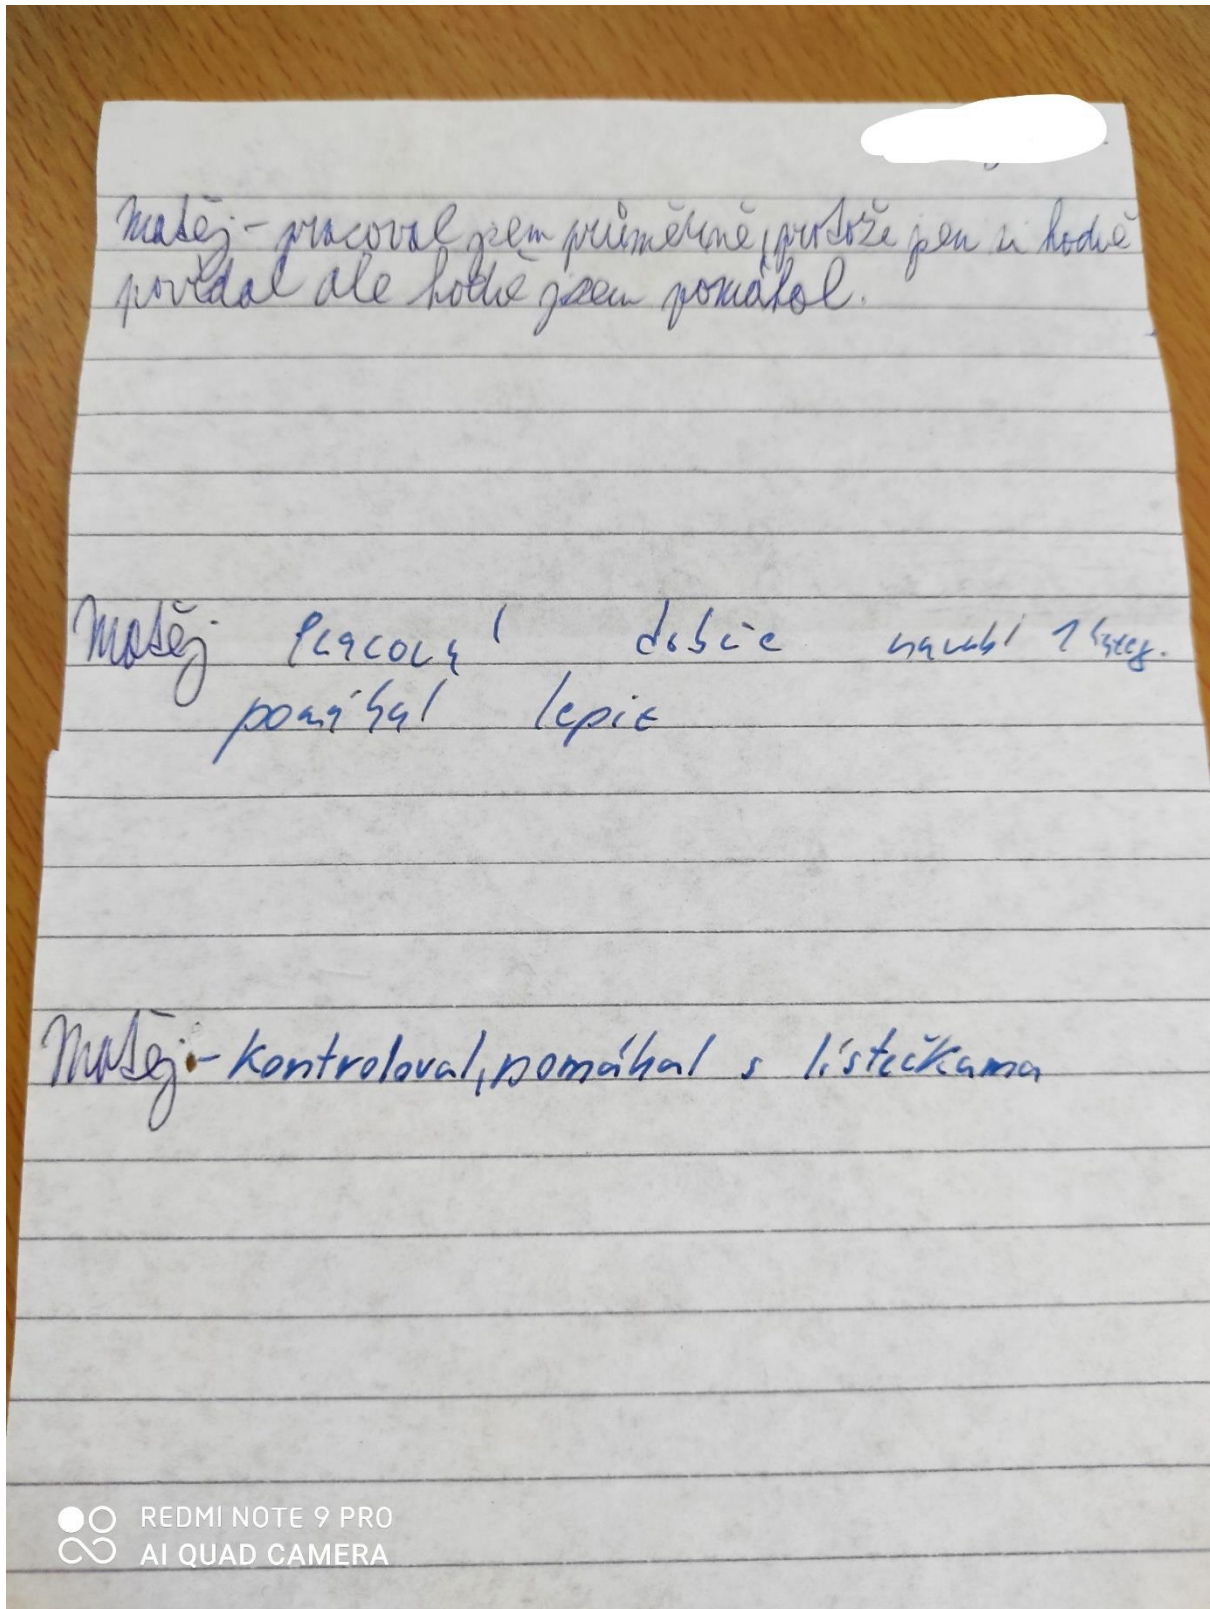 Matěj - pracoval jsem průměrně, protože jsem si hodně
povídal ale hodně jsem pomáhal.
Matěj pracoval dobře 1
pomáhal lepit
Matěj - kontroloval, pomáhal s lístečkama
REDMI NOTE 9 PRO
AI QUAD CAMERA